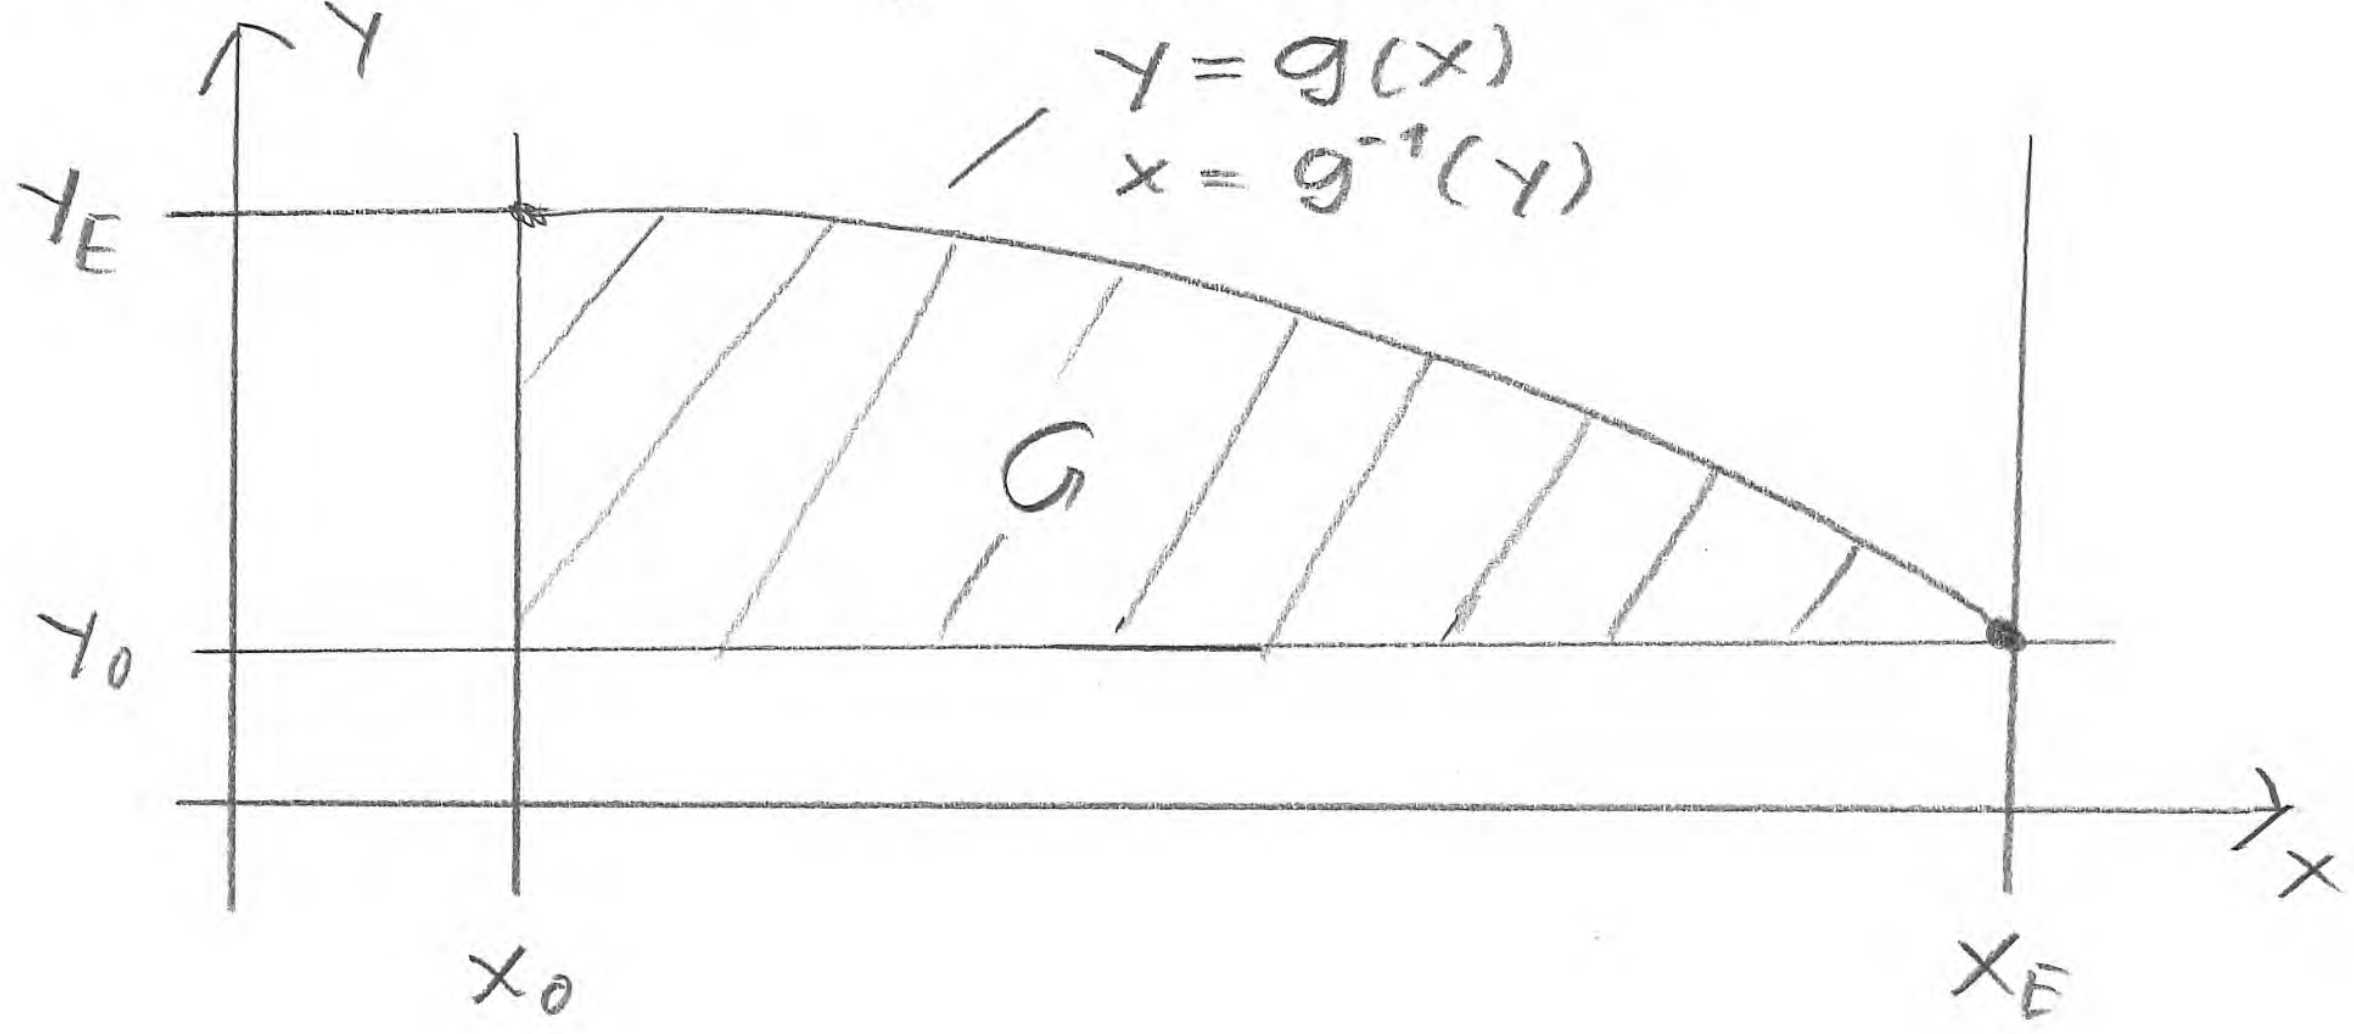 Y
y = g(x)
x = g⁻¹(y)
Y_E
G
Y_0
X
X_0
X_E